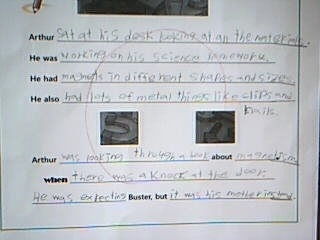 Arthur sat at his desk looking at all the materials.
He was working on his science homework.
He had magnets in different shapes and sizes.
He also had lots of metal things like clips and
nails.
Arthur was looking through a book about magnetism
when there was a knock at the door.
He was expecting Buster, but it was his mother instead.